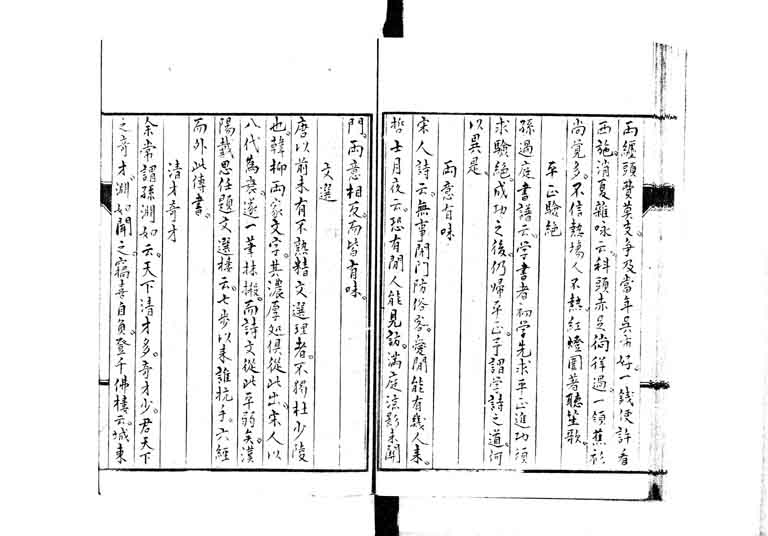 而纏頭費莫支爭及當年吳市好一錢便許看
西施消夏雜咏云科頭赤足徜徉過一領蕉衫
尚覺多不信熱場人不熱紅燈圍著聽笙歌
平正險絕
孫過庭書譜云学書者初学先求平正進功須
求險絕成功之後仍帰平正予謂学詩之道何
以異是
兩意有味
宋人詩云無事閉門防俗客愛閒能有幾人來
哲士月夜云恐有閒人能見訪滿庭涼影未關
門兩意相反而皆有味
文選
唐以前未有不熟精文選理者不獨杜少陵
也韓柳兩家文字其濃厚処俱從此出宋人以
八代為衰遂一筆抹摋而詩文從此平弱矣漢
陽戴思任題文選樓云七步以来誰抗手六經
而外此傳書
清才奇才
余常謂孫淵如云天下清才多奇才少君天下
之奇才淵如聞之竊喜自負登千佛樓云城東